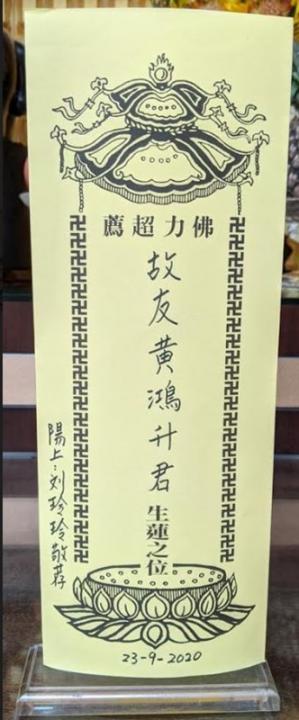 佛力超薦
故友黃鴻升君生蓮之位
陽上：刘玲玲敬荐
23-9-2020